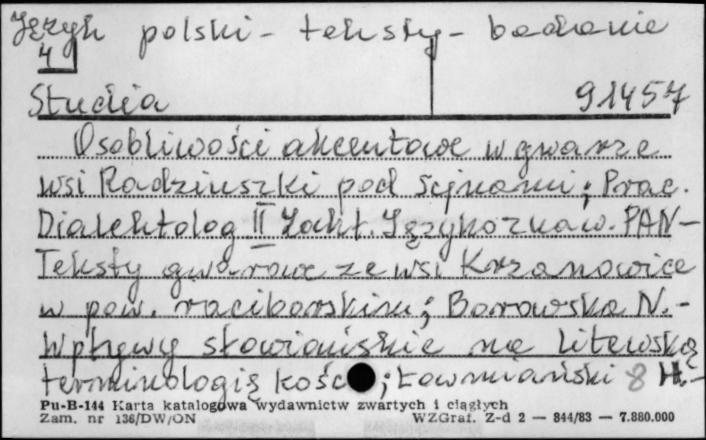 Język polski - teksty - badanie
4
Studia 91457
Osobliwości akcentowe w gwarze
wsi Radziuszki pod Sejnami; Prac.
Dialektolog II Zakł. Językoznaw. PAN -
Teksty gwarowe ze wsi Krzanowice
w pow. raciborskim; Borowska N. -
Wpływy słowiańskie na litewską
terminologię kośc ; Łowmiański 8 H. -
Pu-B-144 Karta katalogowa wydawnictw zwartych i ciągłych
Zam. nr 136/DW/ON WZGraf. Z-d 2 — 844/83 — 7.880.000